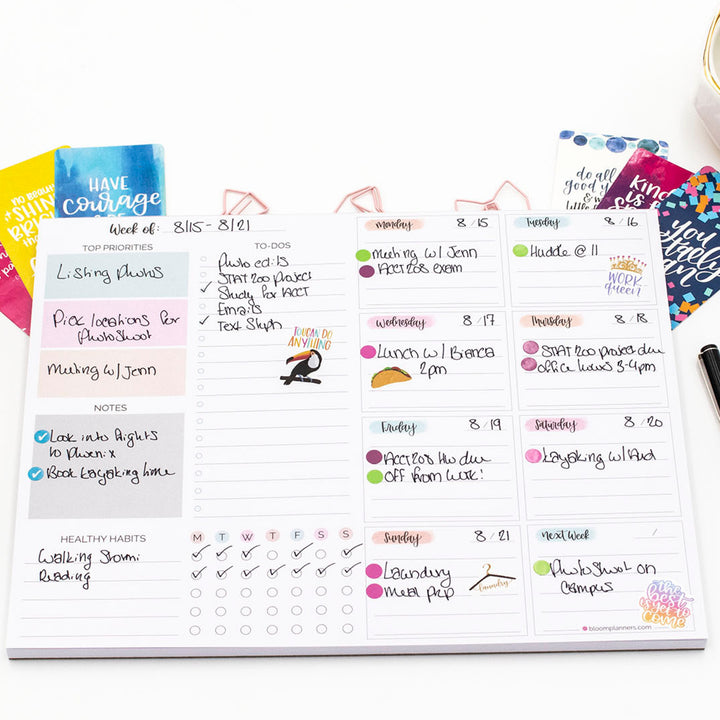 HAVE
courage
do all
good yo
Kin
is
You
Week of: 8/15 - 8/21
TOP PRIORITIES
Listing Photos
Pick locations for
Photoshoot
Meeting w/ Jenn
NOTES
Look into flights
to Phoenix
Book kayaking time
HEALTHY HABITS
Walking Stormi
Reading
TO-DOS
Photo edits
STAT 200 Project
Study for ACCT
Emails
Text Steph
TOUCAN DO
ANYTHING
M T W T F S S
Monday 8/15
Meeting w/ Jenn
ACCT 208 exam
Tuesday 8/16
Huddle @ 11
WORK
queen
Wednesday 8/17
Lunch w/ Bianca
2pm
Thursday 8/18
STAT 200 project due
office hours 3-4pm
Friday 8/19
ACCT 208 Hw due
OFF from work!
Saturday 8/20
Kayaking w/
Sunday 8/21
Laundry
Meal prep
laundry
Next Week /
Photoshoot on
Campus
the
best
is yet to
come
bloomplanners.com